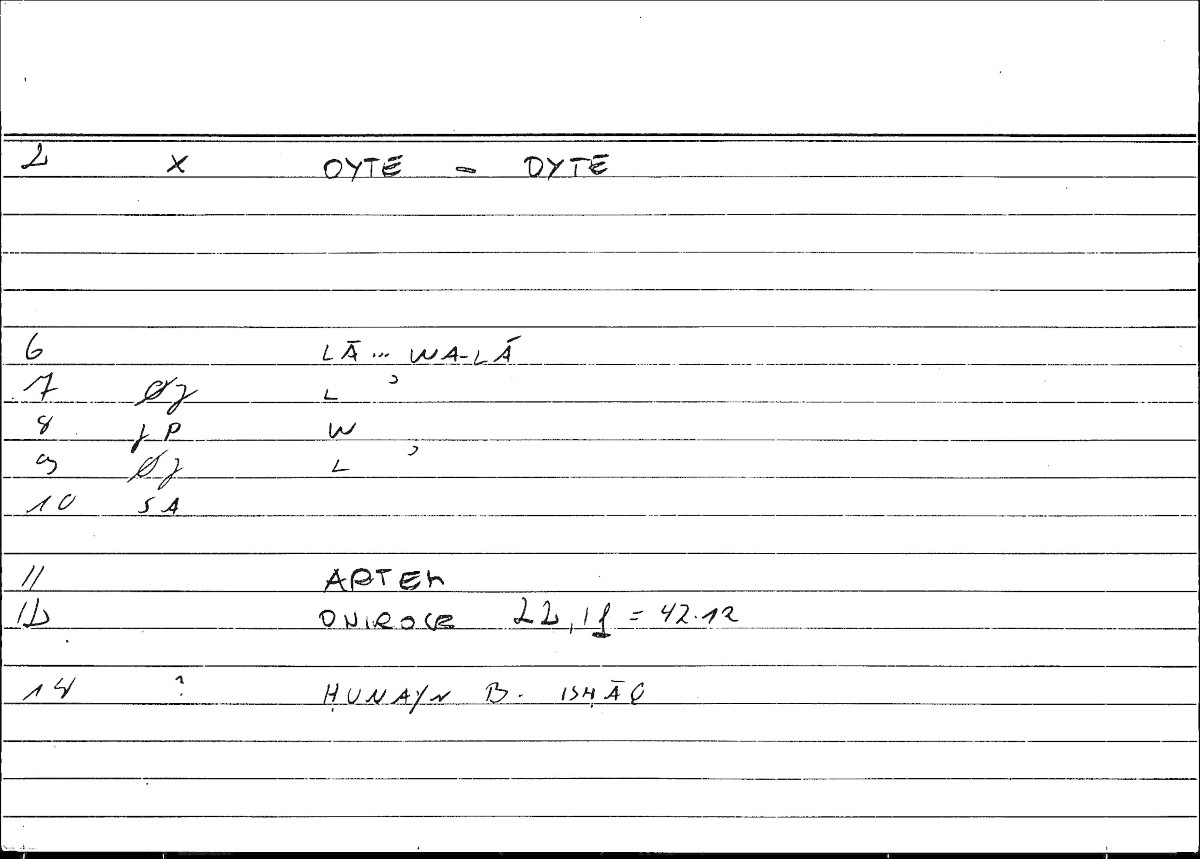 2 x OYTE - OYTE
6 LĀ... WA-LĀ
7 Øj L ʾ
8 jP W
9 Øj L ʾ
10 SA
11 ARTEM
12 ONIROCR 22,1f = 42.12
14 ? ḤUNAYN B. ISḤĀQ